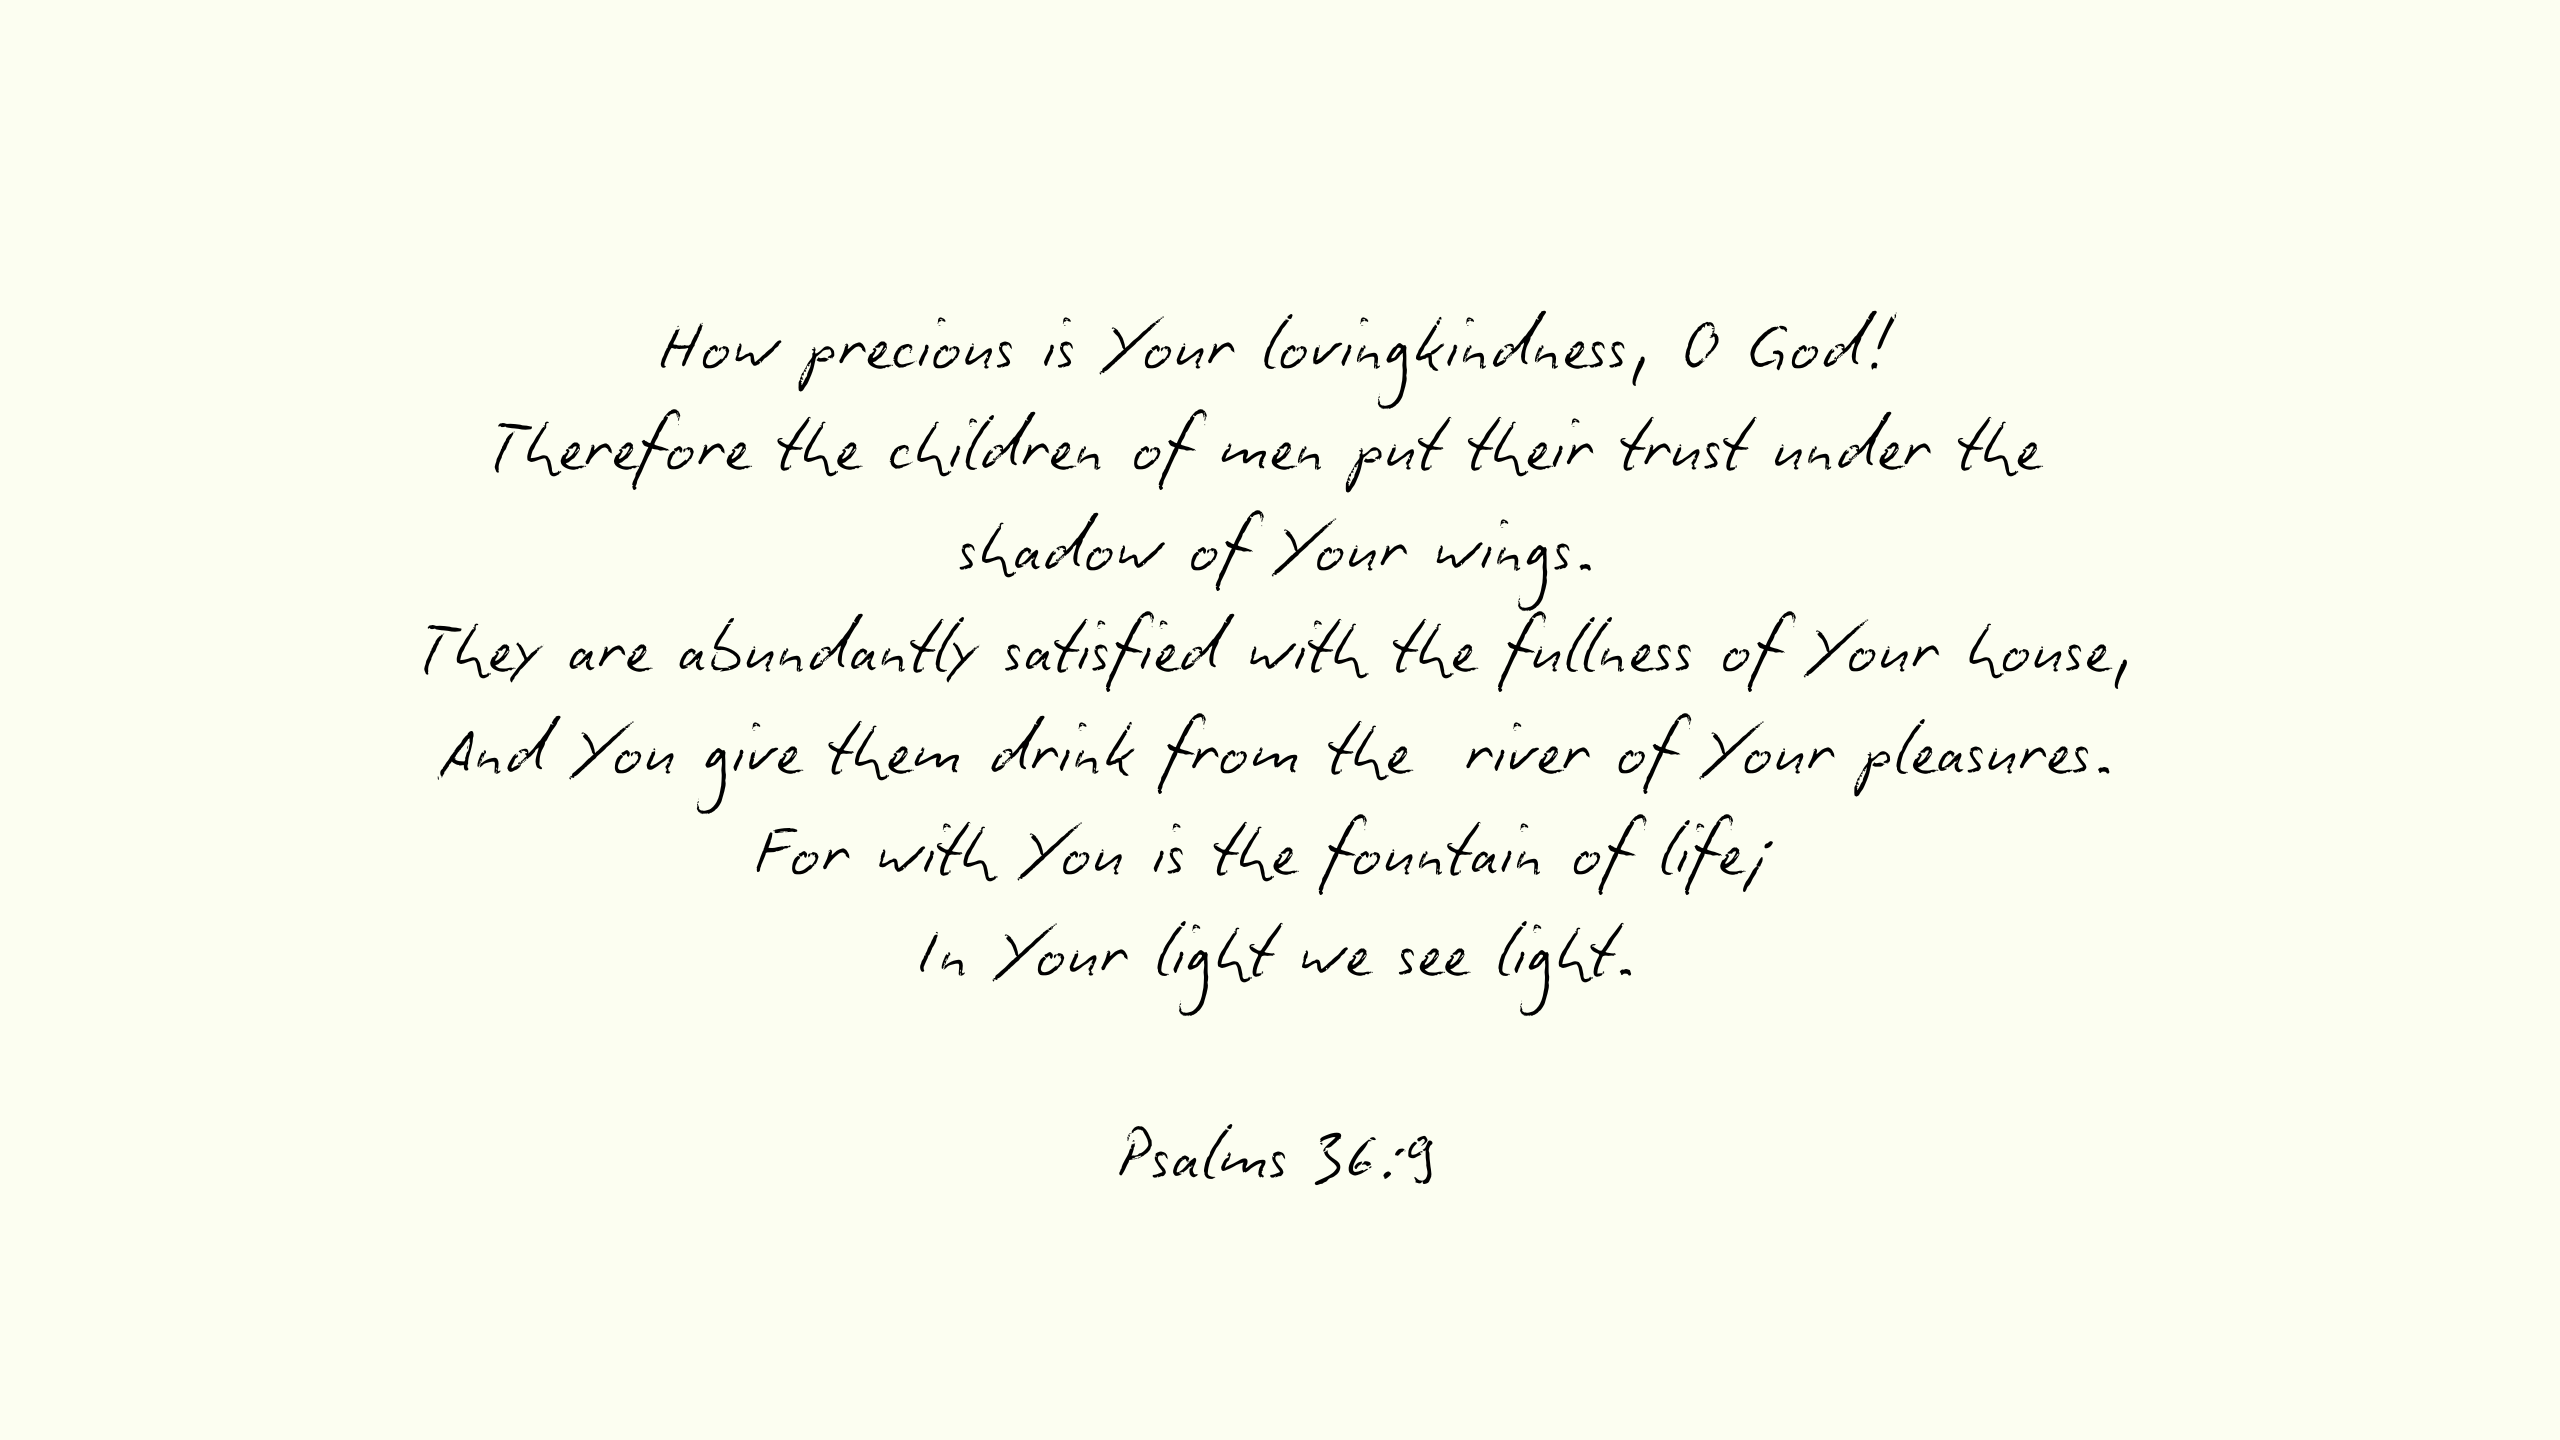 How precious is Your lovingkindness, O God!
Therefore the children of men put their trust under the
shadow of Your wings.
They are abundantly satisfied with the fullness of Your house,
And You give them drink from the  river of Your pleasures.
For with You is the fountain of life;
In Your light we see light.
Psalms 36:9